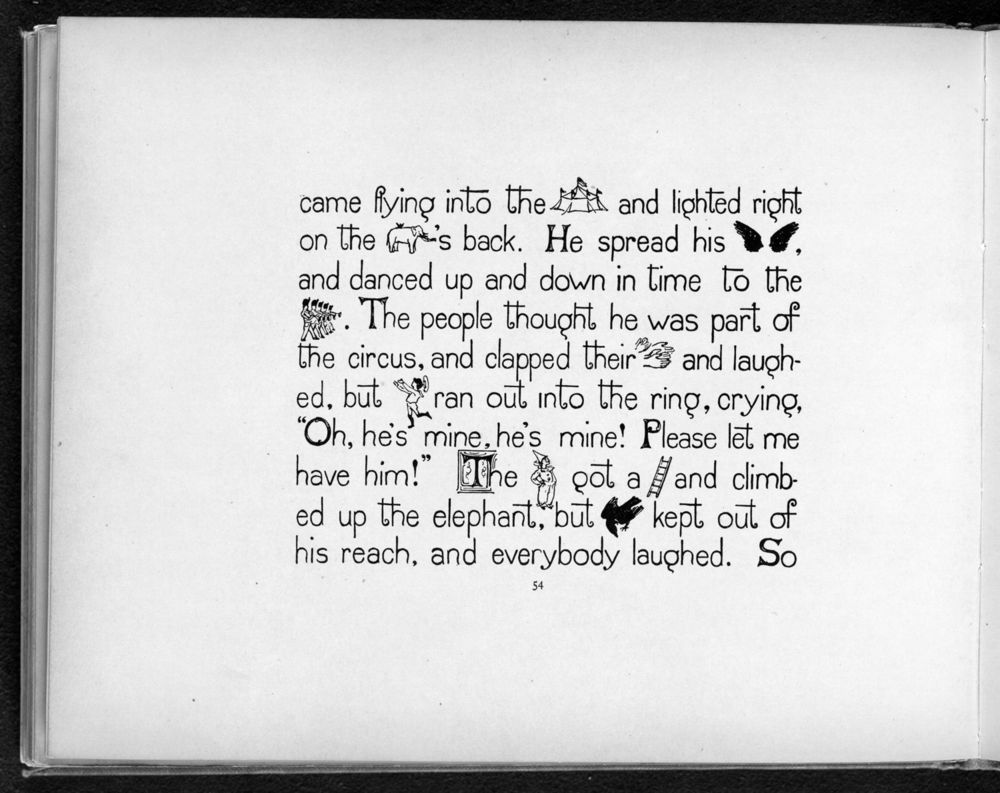 came flying into the and lighted right
on the 's back. He spread his ,
and danced up and down in time to the
. The people thought he was part of
the circus, and clapped their and laugh-
ed, but ran out into the ring, crying,
"Oh, he's mine, he's mine! Please let me
have him!" The got a and climb-
ed up the elephant, but kept out of
his reach, and everybody laughed. So
54